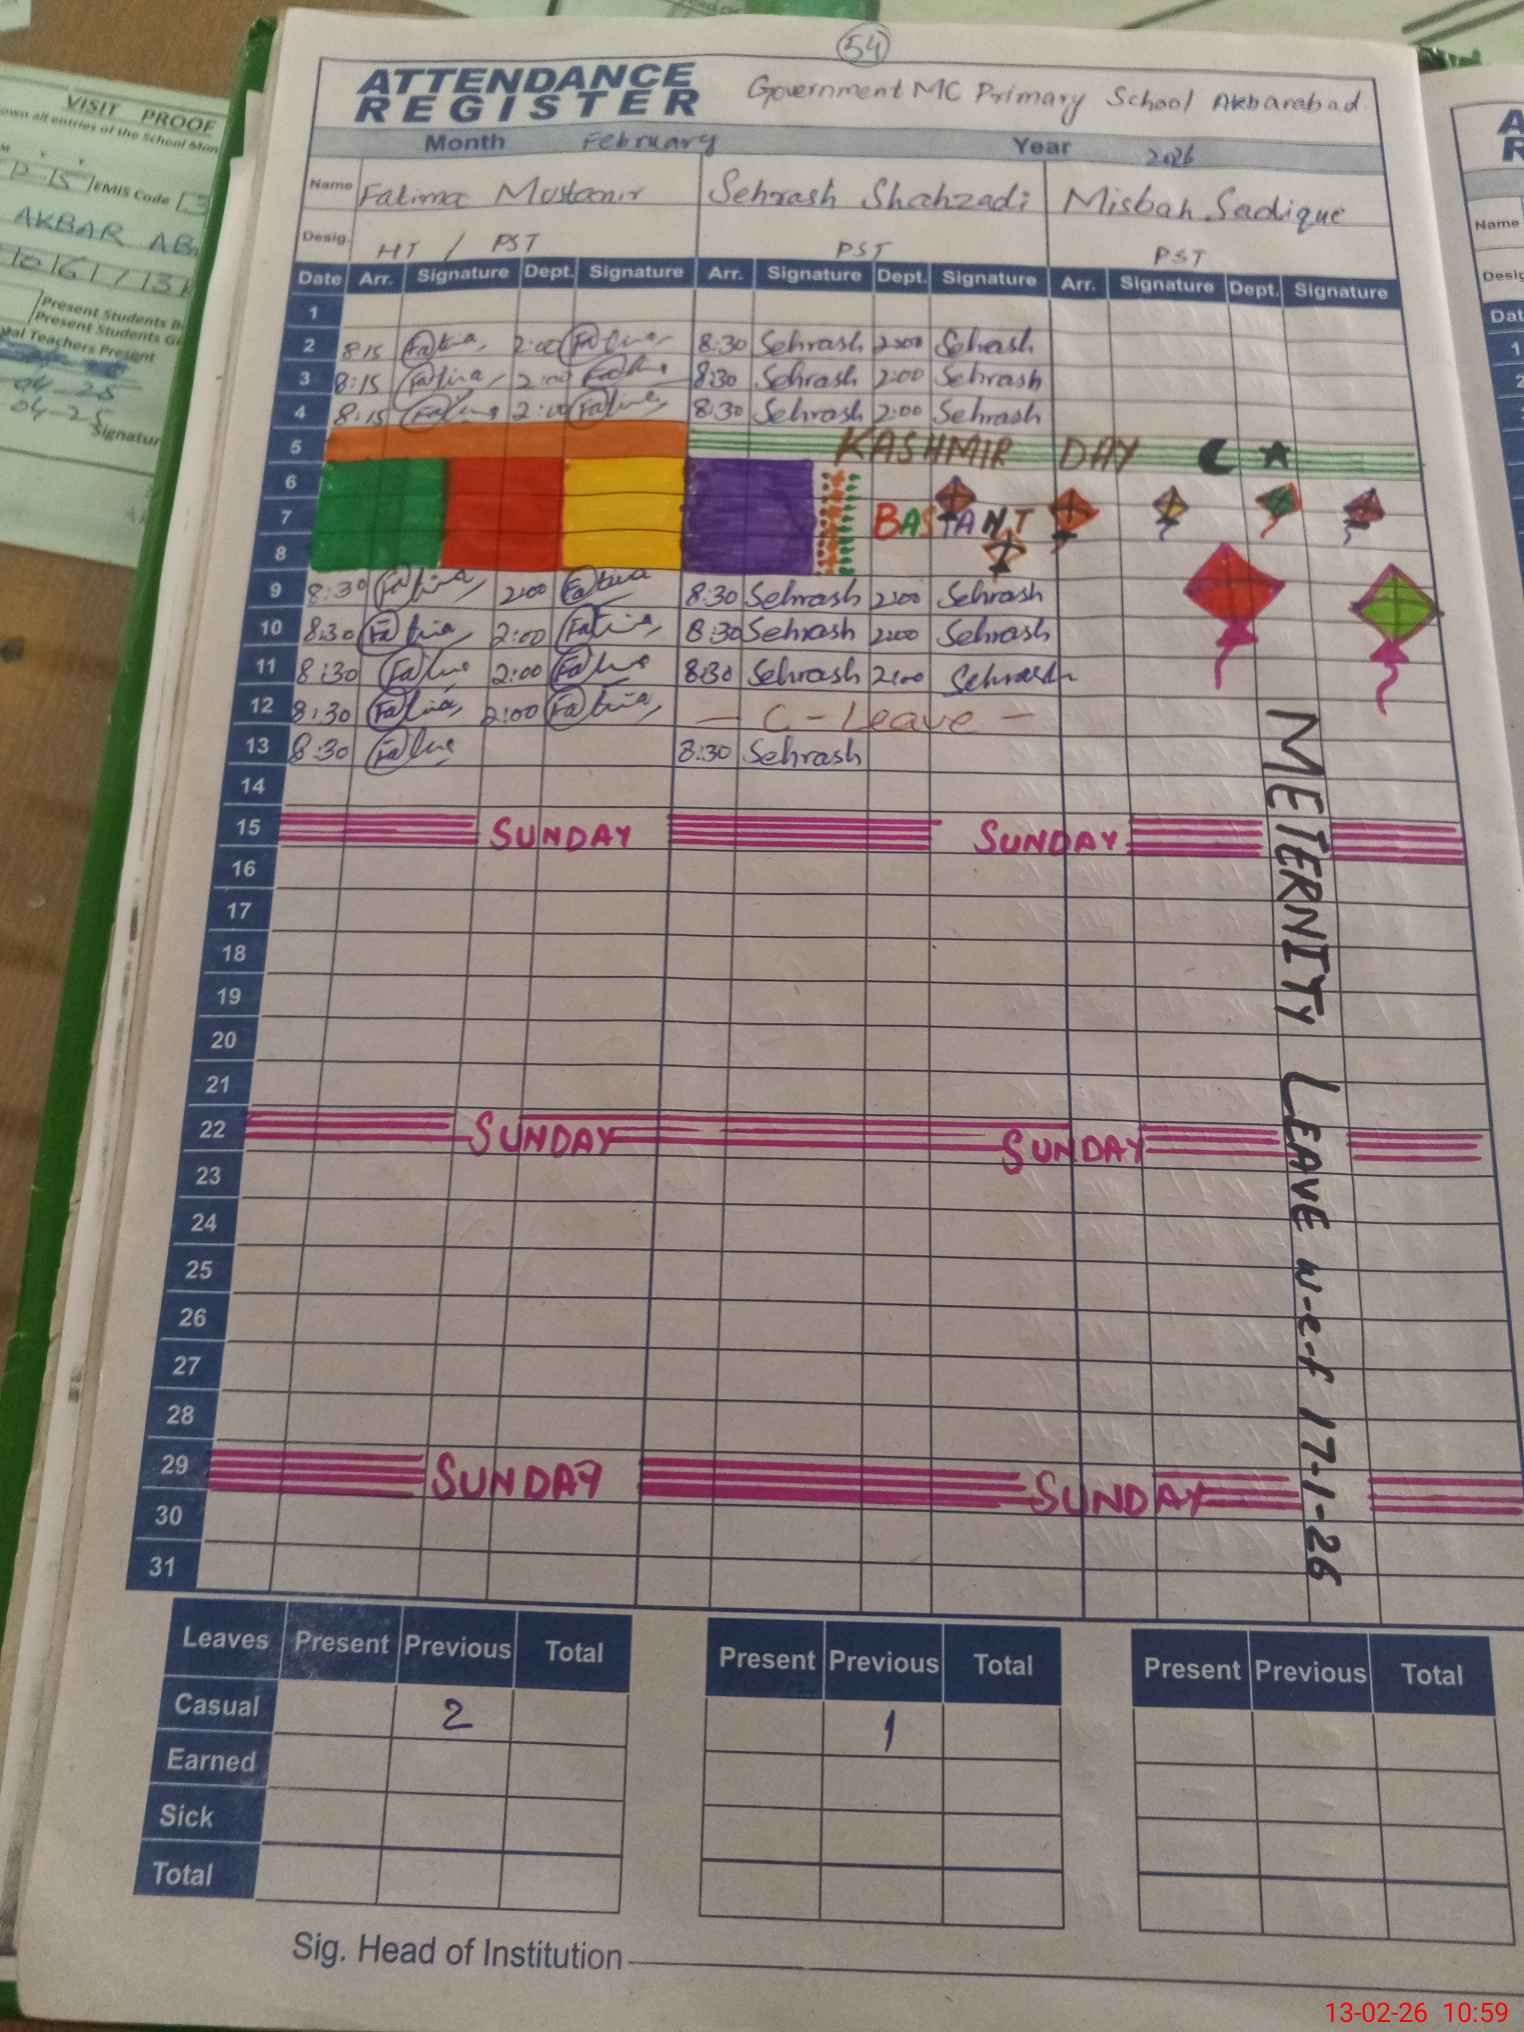 54
ATTENDANCE REGISTER Government MC Primary School Akbarabad.
Month February Year 2026
Name Fatima Mustanir Sehrash Shahzadi Misbah Sadique
Desig. HT / PST PST PST
Date Arr. Signature Dept. Signature Arr. Signature Dept. Signature Arr. Signature Dept. Signature
1
2 8:15 Fatima 2:00 Fatima 8:30 Sehrash 2:00 Sehrash
3 8:15 Fatima 2:00 Fatima 8:30 Sehrash 2:00 Sehrash
4 8:15 Fatima 2:00 Fatima 8:30 Sehrash 2:00 Sehrash
5 KASHMIR DAY
6
7 BASTANT
8
9 8:30 Fatima 2:00 Fatima 8:30 Sehrash 2:00 Sehrash
10 8:30 Fatima 2:00 Fatima 8:30 Sehrash 2:00 Sehrash
11 8:30 Fatima 2:00 Fatima 8:30 Sehrash 2:00 Sehrash
12 8:30 Fatima 2:00 Fatima — C - Leave —
13 8:30 Fatima 8:30 Sehrash
14
15 SUNDAY SUNDAY
16
17
18
19
20
21
22 SUNDAY SUNDAY
23
24
25
26
27
28
29 SUNDAY SUNDAY
30
31
METERNITY LEAVE w-e-f 17-1-26
Leaves Present Previous Total Present Previous Total Present Previous Total
Casual 2 1
Earned
Sick
Total
Sig. Head of Institution
VISIT PROOF
own all entries of the School
EMIS Code
AKBAR AB
Present Students B
Present Students G
Teachers Present
04-25
04-25
Signatur
A
R
Name
Desig
Dat
1
2
13-02-26 10:59